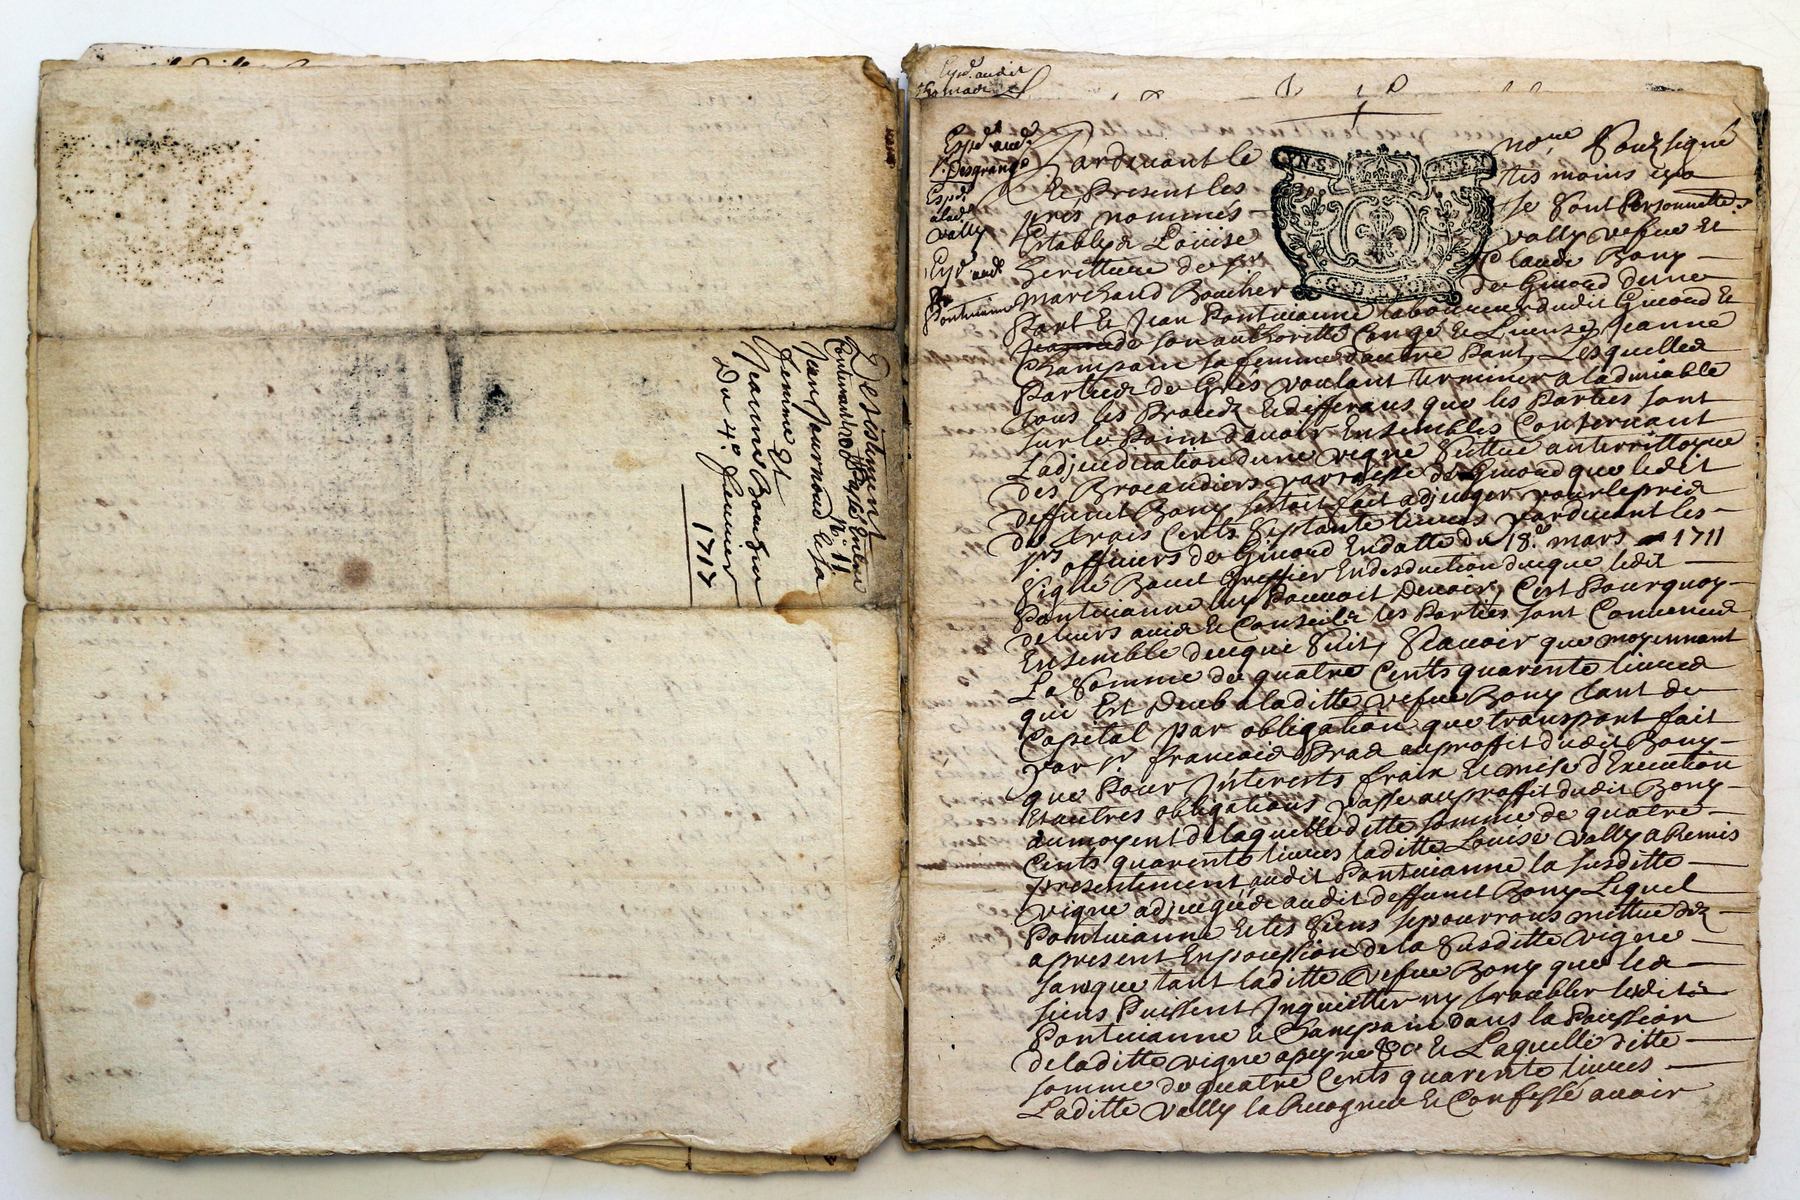 Desistement
Contenant Passé Entre
N.° 11
Jean Journoud Et sa
femme Et
Jeanne Bourdin
Du 4.e feurier
1717
Exp.d audit
Exp.d aud.
s.r Desgrang
Exp.d
alad.
vally
Exp.d aud.
Pontuianne
Pardeuant le no.re Souz signé
Et, Present les tesmoins cy a
pres nommés se Sont Personnelle.t
Establys Loüise vally vefue Et
heritiere de s.r Claude Bony
Marchand Boucher de Giuord dune
Part Et Jean Pontuianne laboureur dudit Giuord Et
de son authoritté Congé Et Lisense Jeanne
Champain sa femme dautre Part, Lesquelles
Parties de Grés voulant terminer a ladmiable
tous les Procés Et differans que les Parties sont
sur le Point dauoir Ensembles Conçernant
Ladjudication dune vigne Situee au territtoire
des Brocaudiers parroisse de Giuord que ledit
deffunct Bony sestoit fait adjuger pour le prix
de trois Cents Septante liures pardeuant les
s.rs officiers de Giuord En datte du 18.e mars 1711
Signé Bouet Greffier En desduction de ce que ledit
Pontuianne luy Pouuoit Deuoir, C'est Pourquoy
de leurs auis Et Conseils les Parties sont Conuenues
Ensemble de ce qui Suit, Scauoir que moyennant
La Somme de quatre Cents quarente liures
qui Est Deub a laditte vefue Bony tant de
Capital par obligation que transport fait
par s.r francois Prad au proffit dudit Bony
que Pour Interests frais Et mise d'Execution
Et autres obligations Passé au proffit dudit Bony
au moyent de laquelle ditte somme de quatre
Cents quarente liures laditte Louise vally a Remis
presentement audit Pontuianne la susditte
vigne adjugée audit deffunct Bony Lequel
Pontuianne Et les Siens se pourrons mettre déz
apresent En possession de la Susditte vigne
sans que tant laditte vefue Bony que les
siens Puissent Inquietter ny troubler lesdits
Pontuianne Et Campain dans la Possession
de laditte vigne a peyne &c Et Laquelle ditte
somme de quatre Cents quarente liures
Laditte vally la Recognu Et Confessé auoir